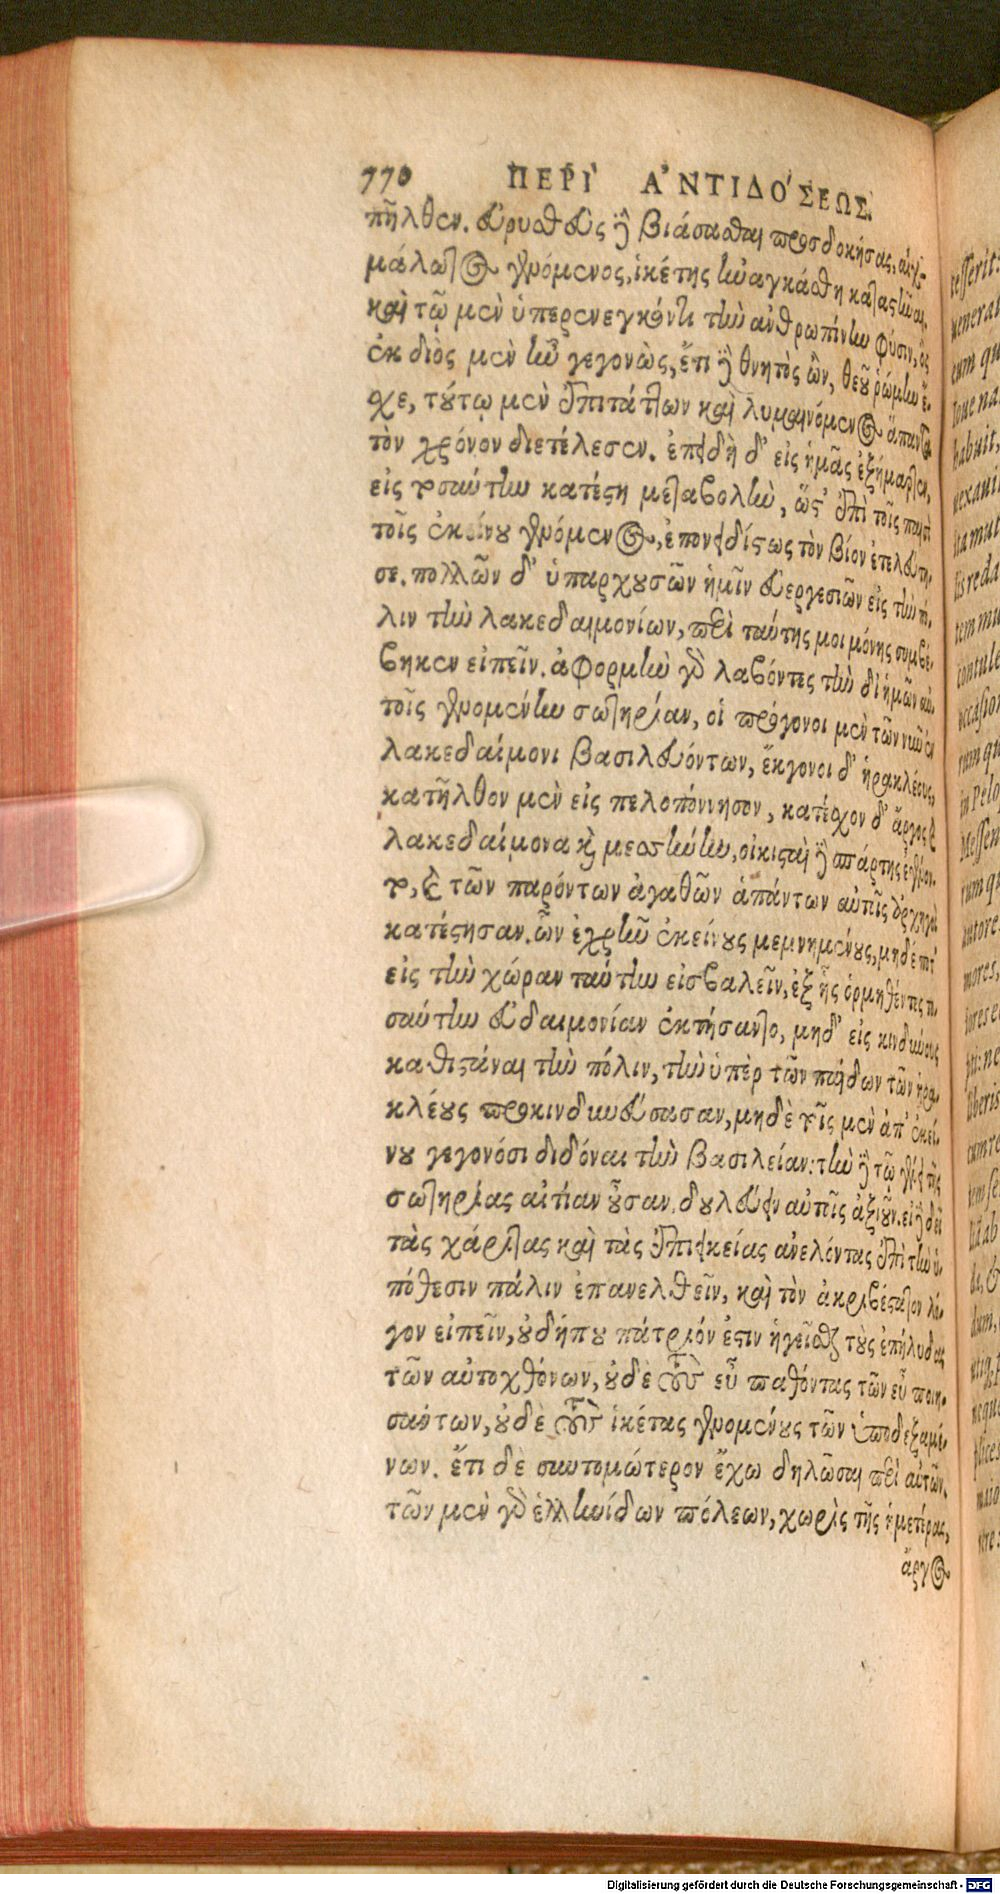 770 ΠΕΡῚ ἈΝΤΙΔΌΣΕΩΣ.
πῆλθεν. Εὐρυσθεὺς δὲ βιάσασθαι προσδοκήσας, αἰχ-
μάλωτος γενόμενος, ἱκέτης ἠναγκάσθη καταστῆναι.
καὶ τῷ μὲν ὑπερενεγκόντι τὴν ἀνθρωπίνην φύσιν, ὃς
ἐκ διὸς μὲν ἦν γεγονὼς, ἔτι δὲ θνητὸς ὢν, θεοῦ ῥώμην ἔ-
χε, τούτῳ μὲν ἐπιτάττων καὶ λυμαινόμενος ἅπαντα
τὸν χρόνον διετέλεσεν. ἐπειδὴ δ' εἰς ἡμᾶς ἐξήμαρτεν,
εἰς τοσαύτην κατέστη μεταβολὴν, ὥστ' ἐπὶ τοῖς παισὶ
τοῖς ἐκείνου γενόμενος, ἐπονειδίστως τὸν βίον ἐτελεύτη-
σε. πολλῶν δ' ὑπαρχουσῶν ἡμῖν εὐεργεσιῶν εἰς τὴν πό-
λιν τὴν λακεδαιμονίων, περὶ ταύτης μοι μόνης συμβέ-
βηκεν εἰπεῖν. ἀφορμὴν γὰρ λαβόντες τὴν δι' ἡμῶν αὐ-
τοῖς γενομένην σωτηρίαν, οἱ πρόγονοι μὲν τῶν νῦν ἐν
λακεδαίμονι βασιλευόντων, ἔκγονοι δ' ἡρακλέους,
κατῆλθον μὲν εἰς πελοπόννησον, κατέσχον δ' ἄργος καὶ
λακεδαίμονα καὶ μεσσήνην, οἰκισταὶ δὲ σπάρτης ἐγένον-
το, καὶ τῶν παρόντων ἀγαθῶν ἁπάντων αὐτοῖς ἀρχηγοὶ
κατέστησαν. ὧν ἐχρῆν ἐκείνους μεμνημένους, μηδέποτ'
εἰς τὴν χώραν ταύτην εἰσβαλεῖν, ἐξ ἧς ὁρμηθέντες το-
σαύτην εὐδαιμονίαν ἐκτήσαντο, μηδ' εἰς κινδύνους
καθιστάναι τὴν πόλιν, τὴν ὑπὲρ τῶν παίδων τῶν ἡρα-
κλέους προκινδυνεύσασαν, μηδὲ τοῖς μὲν ἀπ' ἐκεί-
νου γεγονόσι διδόναι τὴν βασιλείαν: τὴν δὲ τῷ γένει τῆς
σωτηρίας αἰτίαν οὖσαν, δουλεύειν αὐτοῖς ἀξιοῦν. εἰ δὲ δεῖ
τὰς χάριτας καὶ τὰς ἐπιεικείας ἀνελόντας ἐπὶ τὴν ὑ-
πόθεσιν πάλιν ἐπανελθεῖν, καὶ τὸν ἀκριβέστατον λό-
γον εἰπεῖν, οὐ δήπου πάτριόν ἐστιν ἡγεῖσθαι τοὺς ἐπήλυδας
τῶν αὐτοχθόνων, οὐδὲ τοὺς εὖ παθόντας τῶν εὖ ποιη-
σάντων, οὐδὲ τοὺς ἱκέτας γενομένους τῶν ὑποδεξαμέ-
νων. ἔτι δὲ συντομώτερον ἔχω δηλῶσαι περὶ αὐτῶν.
τῶν μὲν γὰρ ἑλληνίδων πόλεων, χωρὶς τῆς ἡμετέρας,
ἄργος
Digitalisierung gefördert durch die Deutsche Forschungsgemeinschaft - DFG